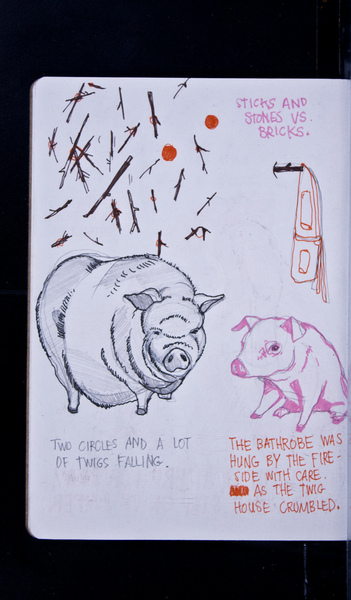 STICKS AND
STONES VS.
BRICKS.
TWO CIRCLES AND A LOT
OF TWIGS FALLING.
THE BATHROBE WAS
HUNG BY THE FIRE-
SIDE WITH CARE.
AS THE TWIG
HOUSE CRUMBLED.